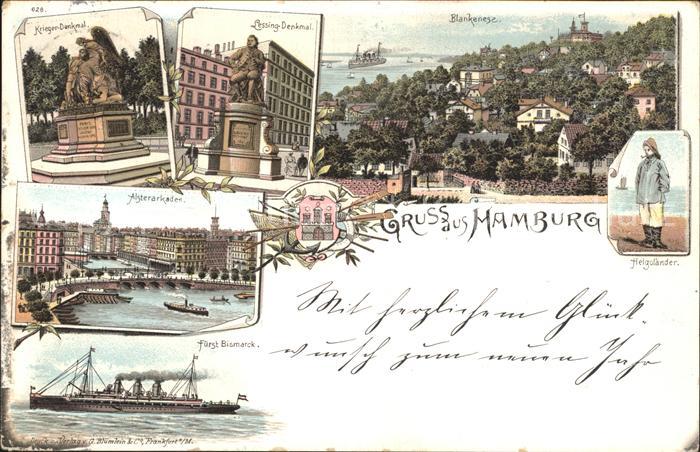 628.
Krieger-Denkmal.
Lessing-Denkmal.
Blankenese
Alsterarkaden.
GRUSS aus HAMBURG
Helgoländer.
Mit herzlichem Glück-
wunsch zum neuen Jahr
Fürst Bismarck.
Druck u. Verlag v. G. Blümlein & Co, Frankfurt a/M.